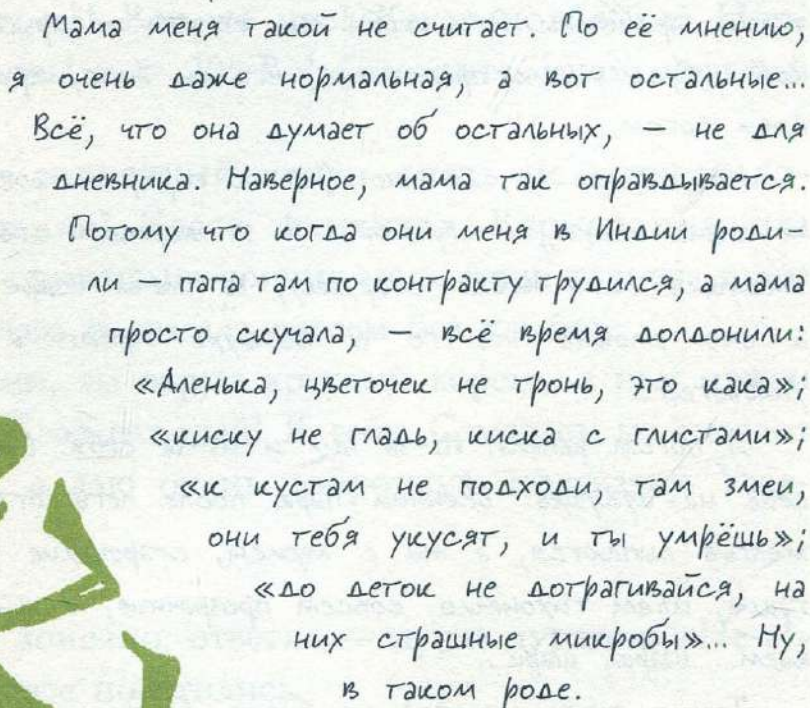 Мама меня такой не считает. По её мнению,
я очень даже нормальная, а вот остальные...
Всё, что она думает об остальных, — не для
дневника Наверное, мама так оправдывается.
Потому что когда они меня в Индии роди-
ли — папа там по контракту трудился, а мама
просто скучала, — всё время долдонили:
«Аленька, цветочек не тронь, это кака»;
«киску не гладь, киска с глистами»;
«к кустам не подходи, там змеи,
они тебя укусят, и ты умрёшь»;
«до деток не дотрагивайся, на
них страшные микробы»... Ну,
в таком роде.